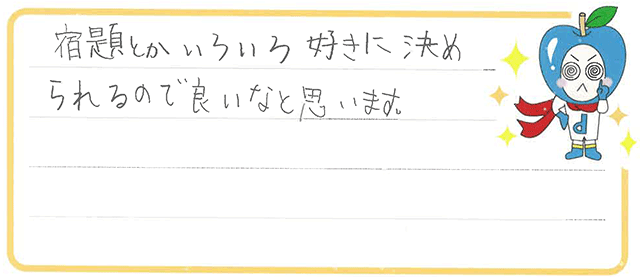 宿題とかいろいろ好きに決め
られるので良いなと思います。
d